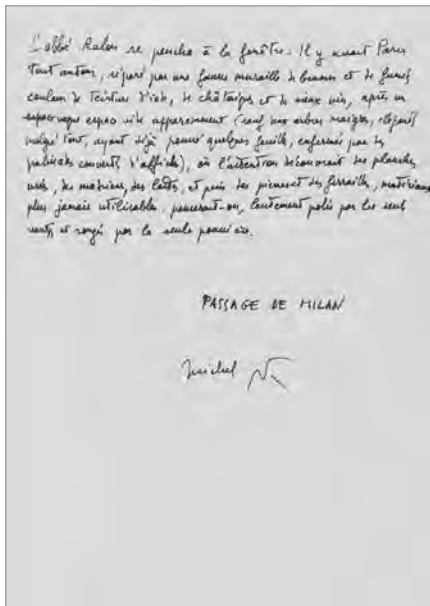 L'abbé Ralon se pencha à la fenêtre. Il y avait Paris
tout autour, séparé par une fausse muraille de brumes et de fumées
couleur de teinture d'iode, de châtaignes et de vieux vin, après un
espace vide apparemment (sauf deux arbres maigres, élégants
malgré tout, ayant déjà poussé quelques feuilles, enfermé par des
palissades couvertes d'affiches), où l'attention découvrait des planches
usées, des madriers, des lattes, et puis des pierres et des ferrailles, matériaux
plus jamais utilisables, penserait-on, lentement polis par les seuls
vents, et rongés par la seule poussière.
PASSAGE DE MILAN
Michel